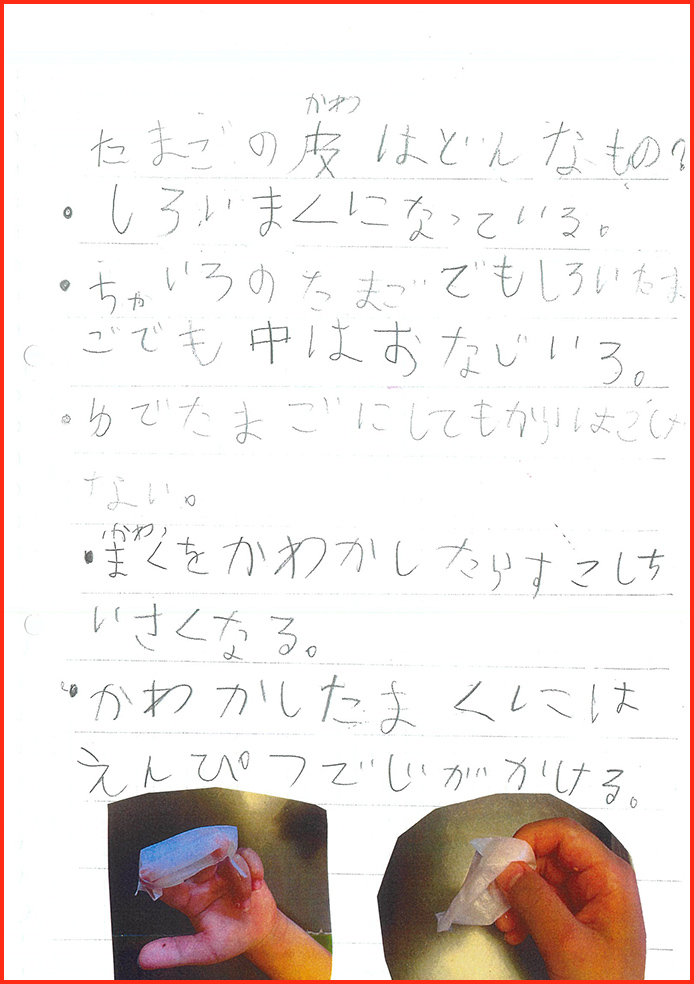 かわ
たまごの皮はどんなもの?
・しろいまくになっている。
・ちゃいろのたまごでもしろいたま
ごでも中はおなじいろ。
・ゆでたまごにしてもからはとけ
ない。
かわ
・まくをかわかしたらすこしち
いさくなる。
・かわかしたまくには
えんぴつでじがかける。